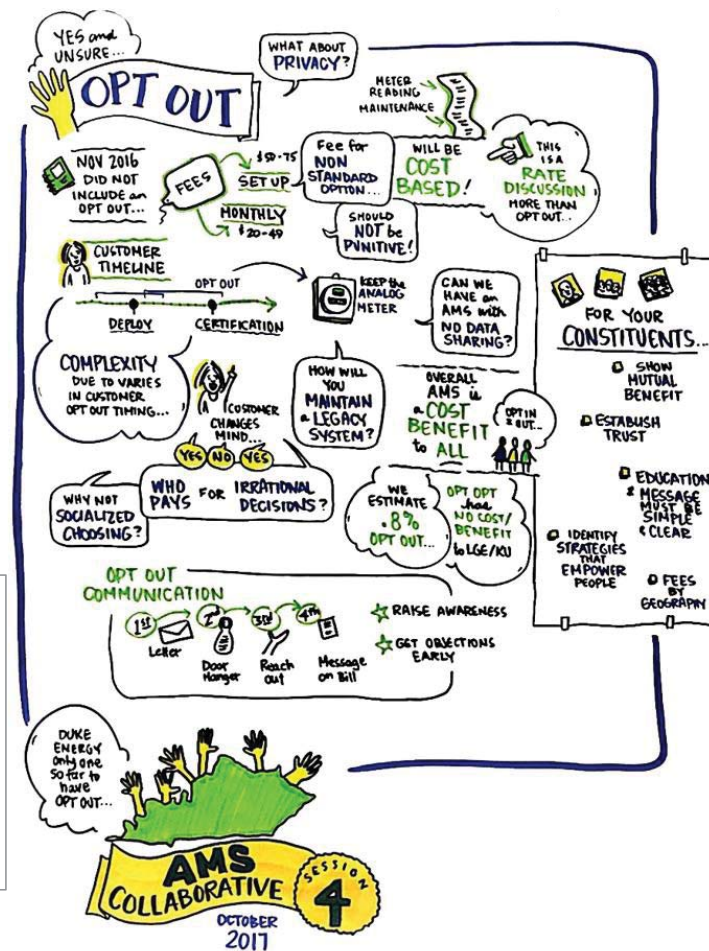 YES and
UNSURE...
OPT OUT
WHAT ABOUT
PRIVACY?
METER
READING
MAINTENANCE
NOV 2016
DID NOT
INCLUDE an
OPT OUT...
FEES
$50-75
SET UP
MONTHLY
$20-49
Fee for
NON
STANDARD
OPTION...
WILL BE
COST
BASED!
THIS
IS A
RATE
DISCUSSION
MORE THAN
OPT OUT...
SHOULD
NOT be
PUNITIVE!
CUSTOMER
TIMELINE
OPT OUT
DEPLOY
CERTIFICATION
KEEP the
ANALOG
METER
CAN WE
HAVE an
AMS with
NO DATA
SHARING?
COMPLEXITY
DUE TO VARIES
IN CUSTOMER
OPT OUT TIMING...
CUSTOMER
CHANGES
MIND...
YES NO YES
HOW WILL
YOU
MAINTAIN
a LEGACY
SYSTEM?
OVERALL
AMS is
a COST
BENEFIT
to ALL
OPT IN
& OUT...
WHY NOT
SOCIALIZED
CHOOSING?
WHO
PAYS FOR IRRATIONAL
DECISIONS?
WE
ESTIMATE
.8%
OPT OUT...
OPT OPT
has
NO COST/
BENEFIT
to LGE/KU
FOR YOUR
CONSTITUENTS...
SHOW
MUTUAL
BENEFIT
ESTABLISH
TRUST
EDUCATION
& MESSAGE
MUST BE
SIMPLE
& CLEAR
IDENTIFY
STRATEGIES
THAT
EMPOWER
PEOPLE
FEES
BY
GEOGRAPHY
OPT OUT
COMMUNICATION
1st
Letter
2nd
Door
Hanger
3rd
Reach
out
4th
Message
on Bill
RAISE AWARENESS
GET OBJECTIONS
EARLY
DUKE
ENERGY
only one
so far to
have
OPT OUT...
AMS
COLLABORATIVE
SESSION
4
OCTOBER
2017